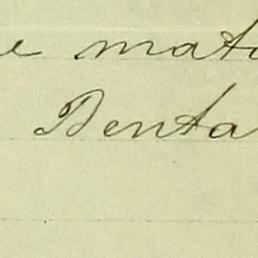 e mato
Denta